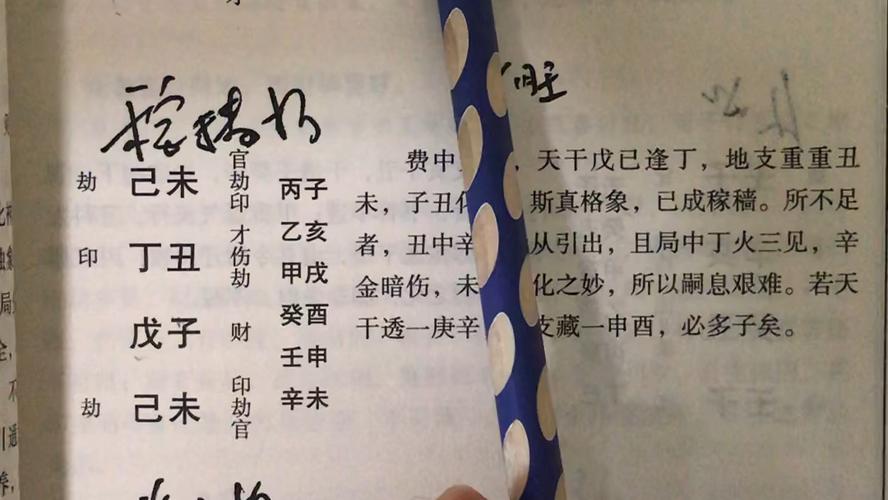 稼穑格
旺
劫 己未 官劫印
印 丁丑 才伤劫
戊子 财
劫 己未 印劫官
丙子
乙亥
甲戌
癸酉
壬申
辛未
费中 ，天干戊已逢丁，地支重重丑
未，子丑化 斯真格象，已成稼穑。所不足
者，丑中辛 从引出，且局中丁火三见，辛
金暗伤，未 化之妙，所以嗣息艰难。若天
干透一庚辛 支藏一申酉，必多子矣。